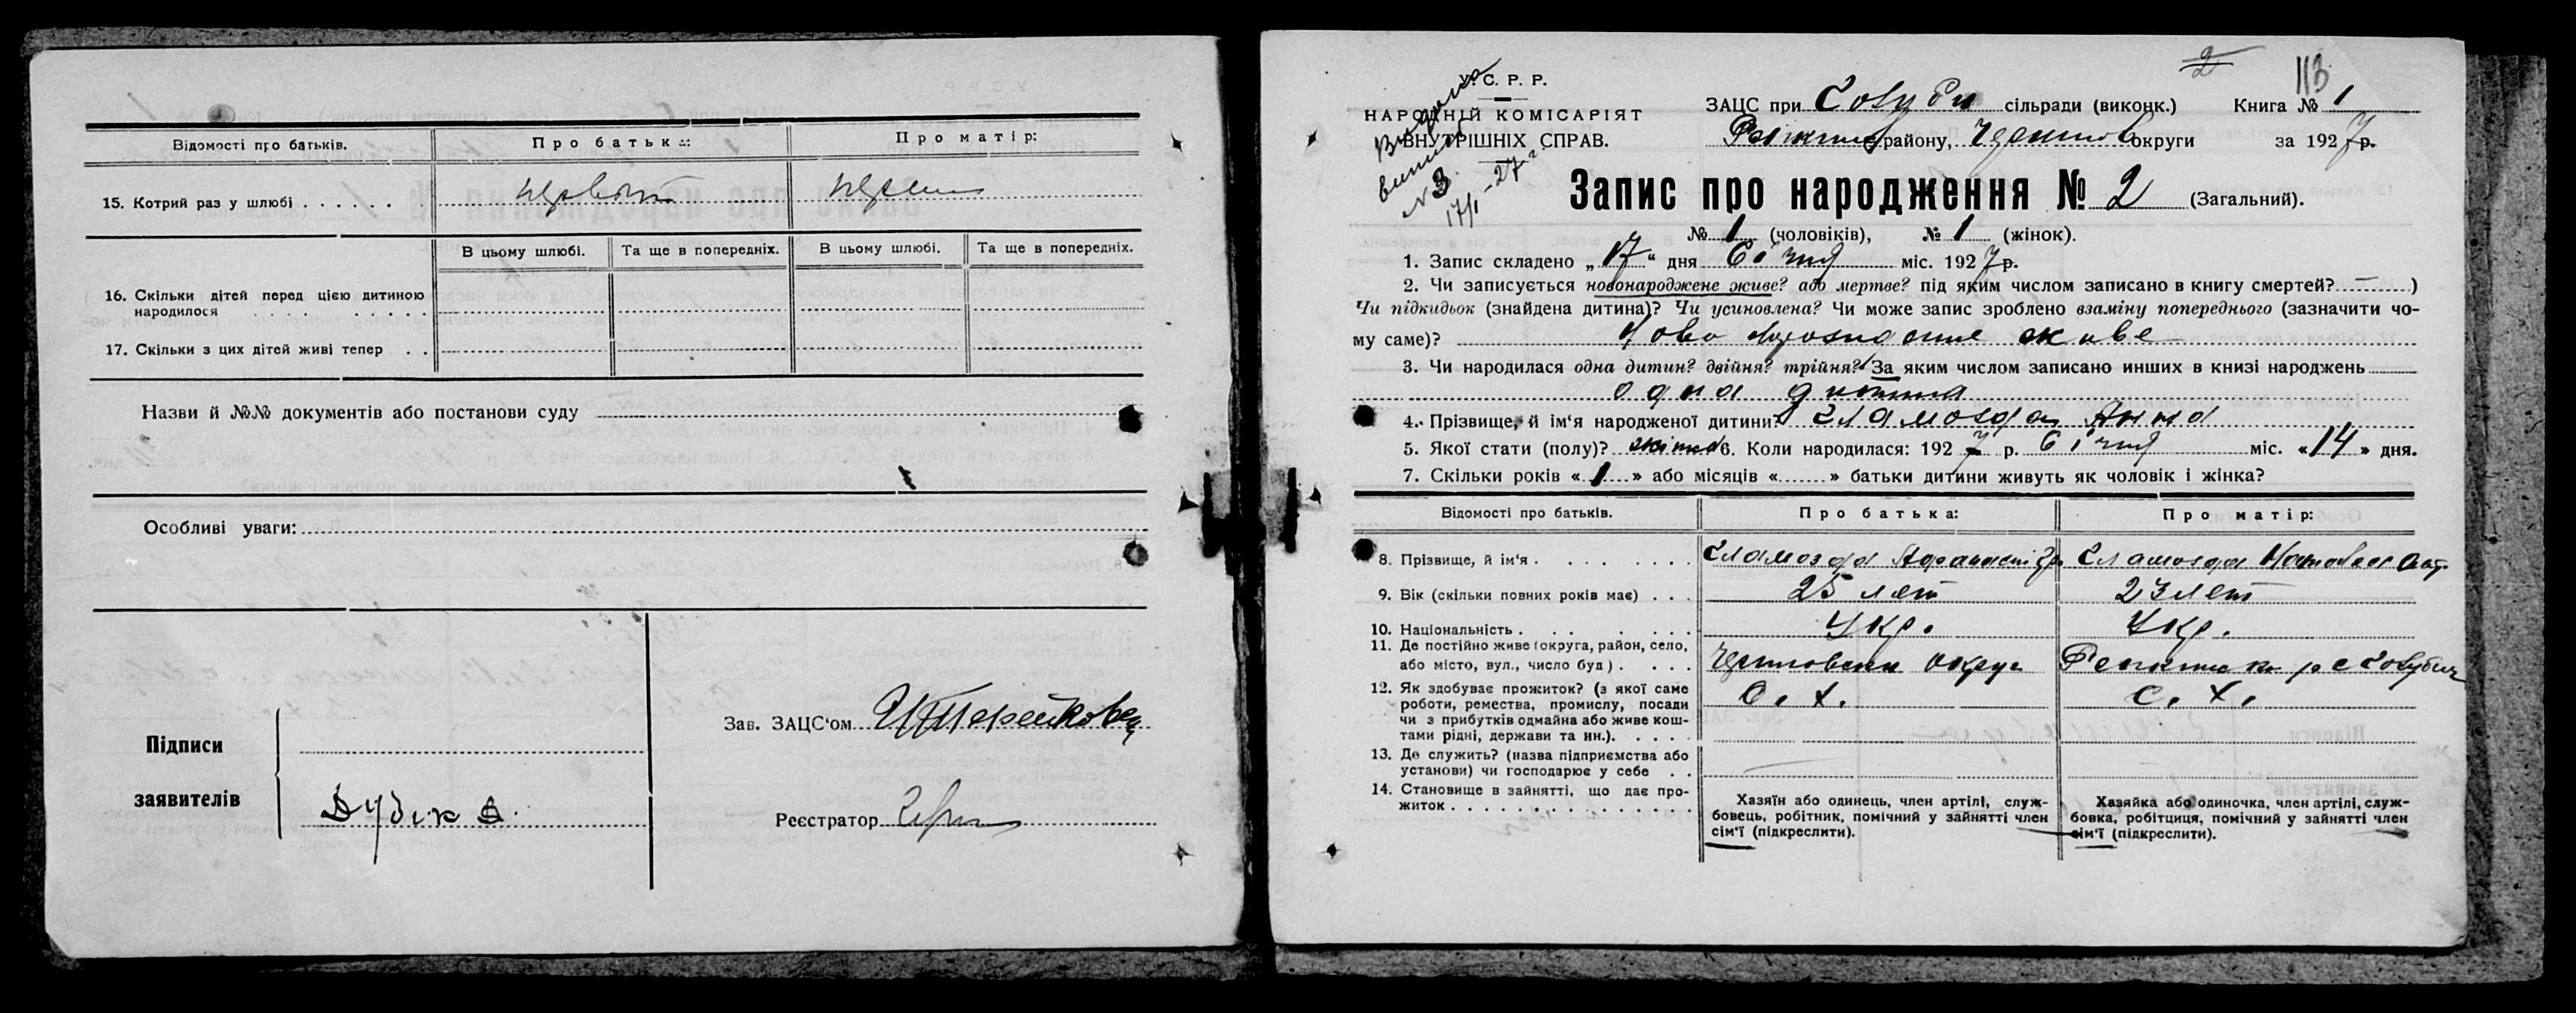 Відомості про батьків.
Про батька:
Про матір:
15. Котрий раз у шлюбі . . . . . .
первый
В цьому шлюбі.
Та ще в попередніх.
В цьому шлюбі.
Та ще в попередніх.
16. Скільки дітей перед цією дитиною
народилося . . . . . . . . .
17. Скільки з цих дітей живі тепер . .
Назви й №№ документів або постанови суду
Особливі уваги:
Підписи
заявителів
Дубік
Зав. ЗАЦС'ом
Реєстратор
2
113
У. С. Р. Р.
НАРОДНІЙ КОМІСАРІЯТ
ВНУТРІШНІХ СПРАВ.
Видана
№ 3
17/I-27 г.
ЗАЦС при сільради (виконк.) Книга № 1
району, округи за 1927 р.
Запис про народження № 2 (Загальний).
№ 1 (чоловіків), № 1 (жінок).
1. Запис складено „ 17 “ дня Січня міс. 1927 р.
2. Чи записується новонароджене живе? або мертве? під яким числом записано в книгу смертей? — )
Чи підкидьок (знайдена дитина)? Чи усиновлена? Чи може запис зроблено взаміну попереднього (зазначити чо-
му саме)? живе
3. Чи народилася одна дитин? двійня? трійня? За яким числом записано инших в книзі народжень
одна дитина
4. Прізвище, й ім'я народженої дитини? Сламозда Анна
5. Якої стати (полу)? 6. Коли народилася: 1927 р. Січня міс. « 14 » дня.
7. Скільки років « 1 » або місяців « » батьки дитини живуть як чоловік і жінка?
Відомості про батьків.
Про батька:
Про матір:
8. Прізвище, й ім'я . . . . . . . .
Сламозда
Сламозда
9. Вік (скільки повних років має) . . .
25 лет
23 лет
10. Національність . . . . . . .
Укр.
Укр.
11. Де постійно живе (округа, район, село,
або місто, вул., число буд) . . . .
12. Як здобуває прожиток? (з якої саме
роботи, ремества, промислу, посади
чи з прибутків одмайна або живе кош-
тами рідні, держави та ин.). . . . .
С. Х.
С. Х.
13. Де служить? (назва підприємства або
установи) чи господарює у себе . .
14. Становище в зайнятті, що дає про-
житок . . . . . . . . . . . . . .
Хазяїн або одинець, член артілі, служ-
бовець, робітник, помічний у зайнятті член
сім'ї (підкреслити).
Хазяйка або одиночка, член артілі, служ-
бовка, робітциця, помічний у зайнятті член
сім'ї (підкреслити).